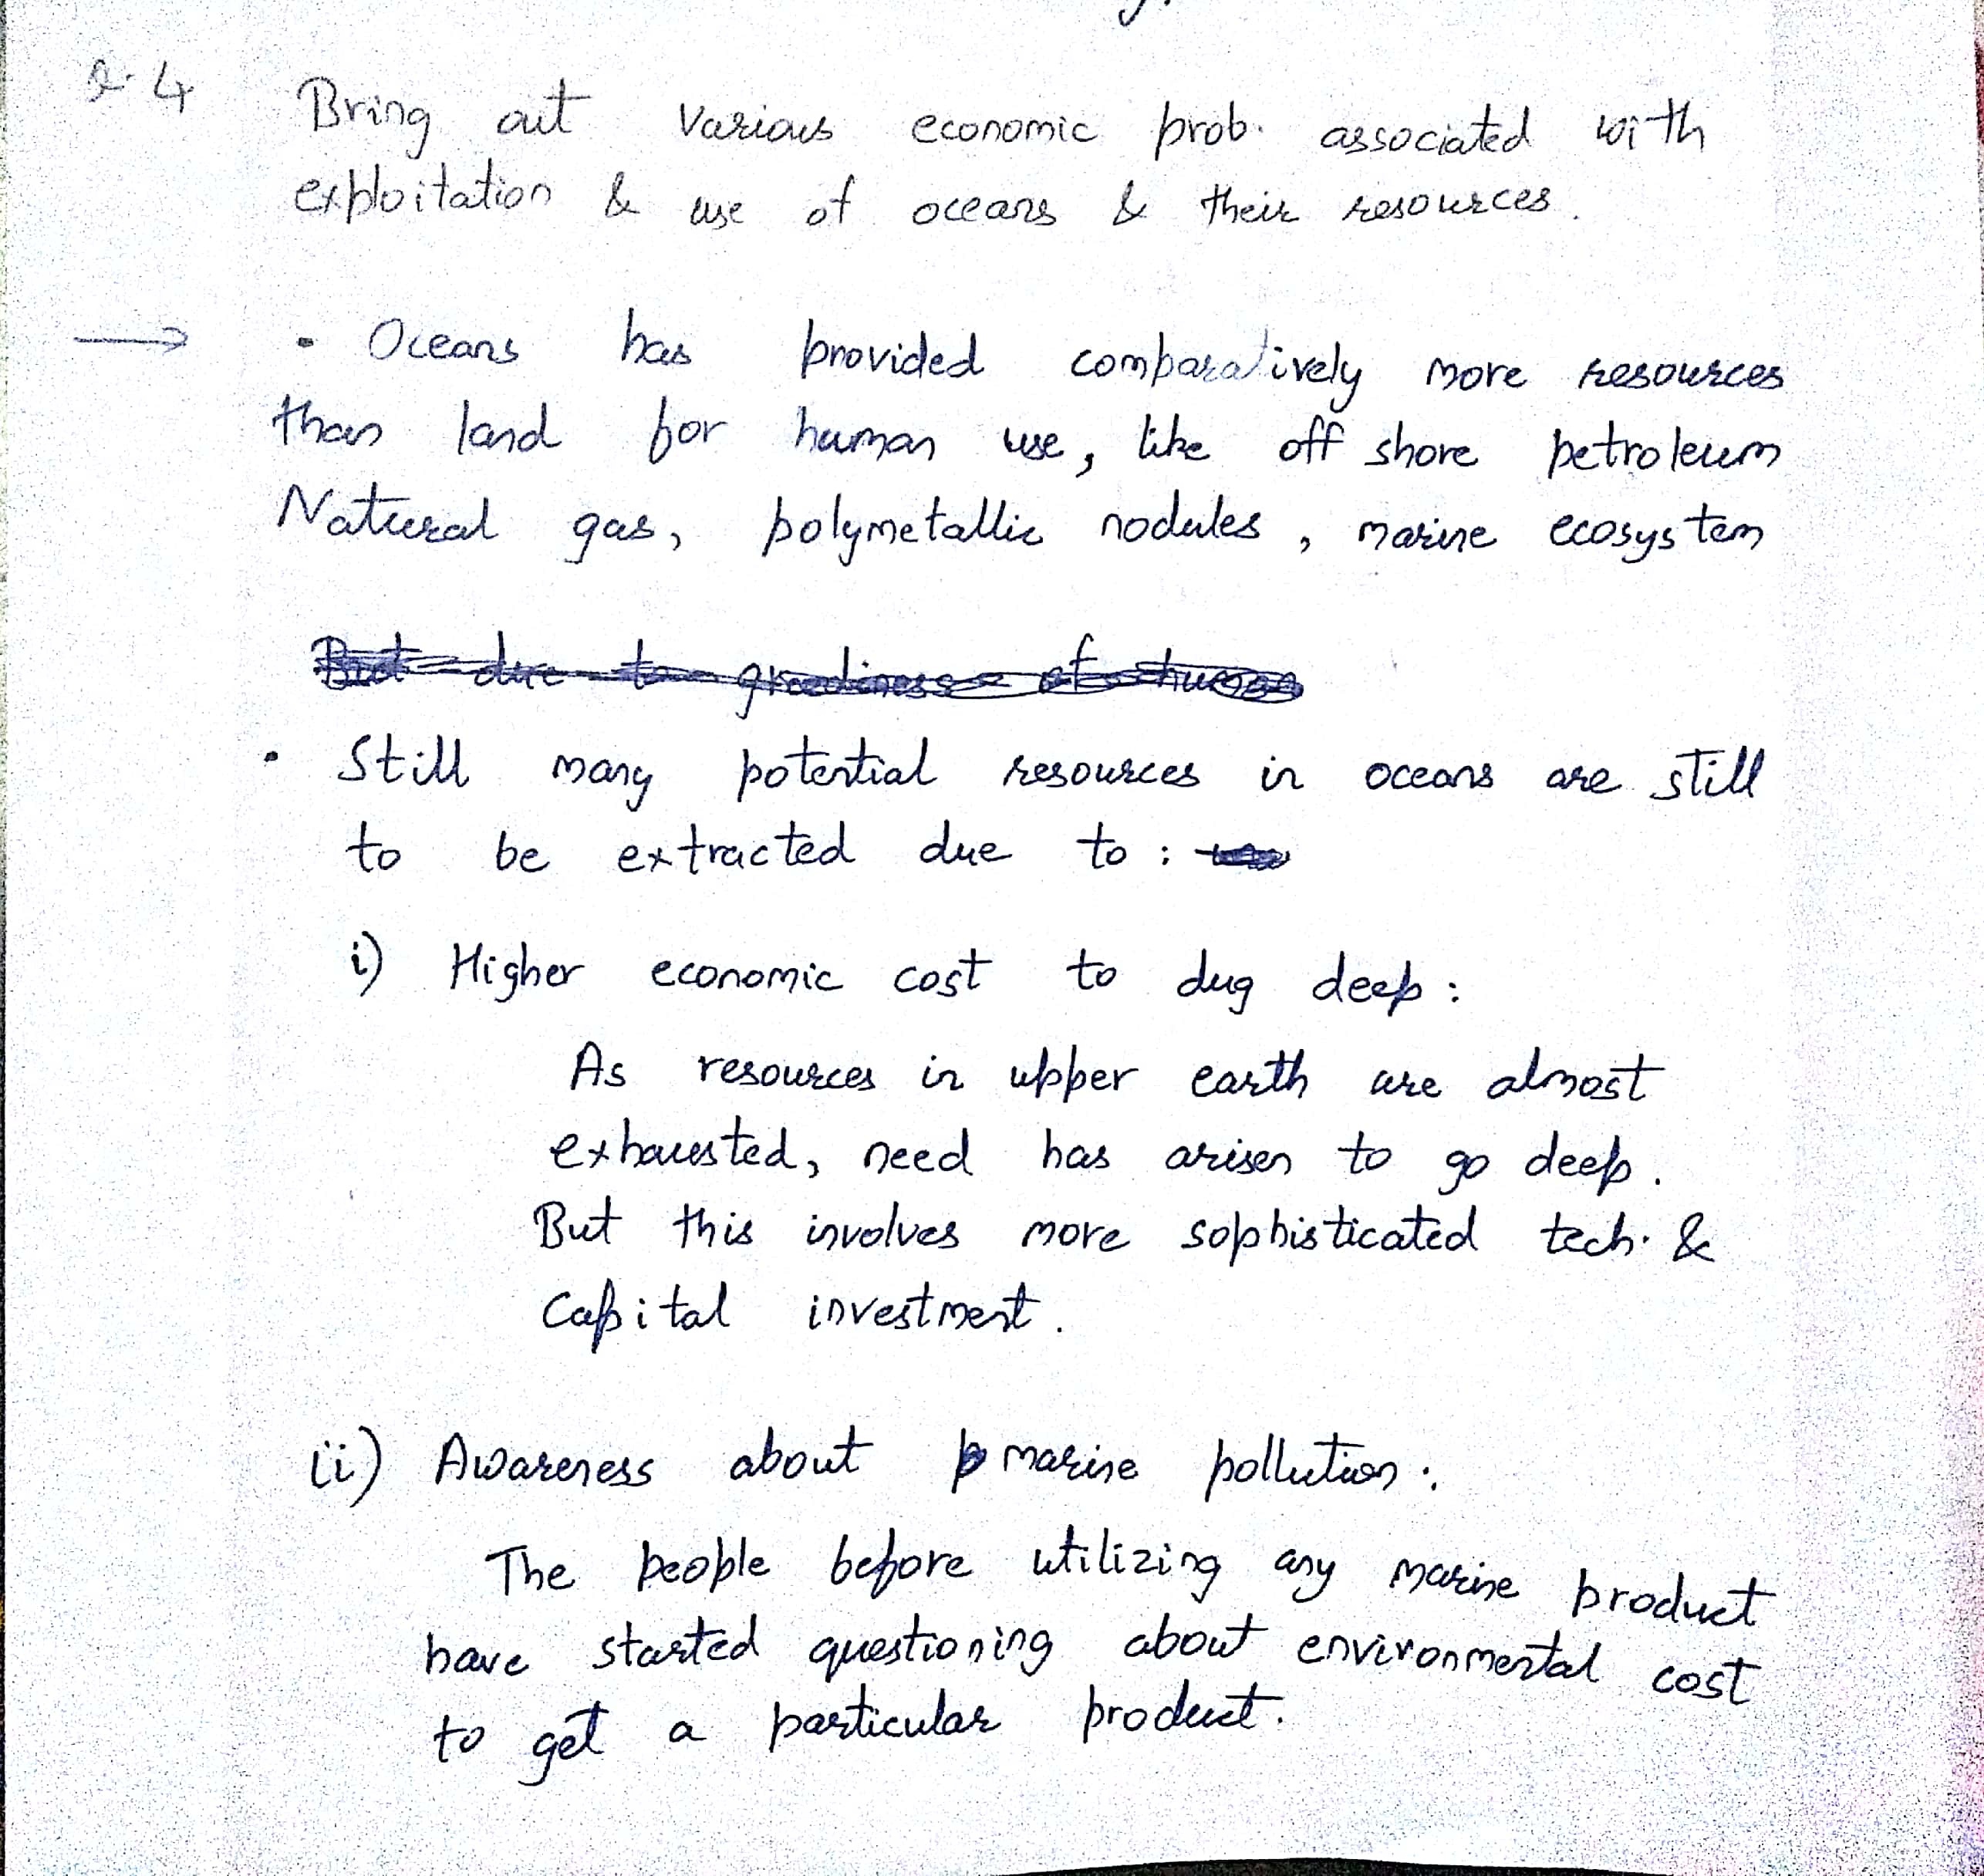 Q.4 Bring out various economic prob. associated with
exploitation & use of oceans & their resources.
→ • Oceans has provided comparatively more resources
than land for human use, like off shore petroleum
Natural gas, polymetallic nodules, marine ecosystem
But due to greediness of human
• Still many potential resources in oceans are still
to be extracted due to :
i) Higher economic cost to dug deep :
As resources in upper earth are almost
exhausted, need has arisen to go deep.
But this involves more sophisticated tech. &
Capital investment.
ii) Awareness about marine pollution :
The people before utilizing any marine product
have started questioning about environmental cost
to get a particular product.